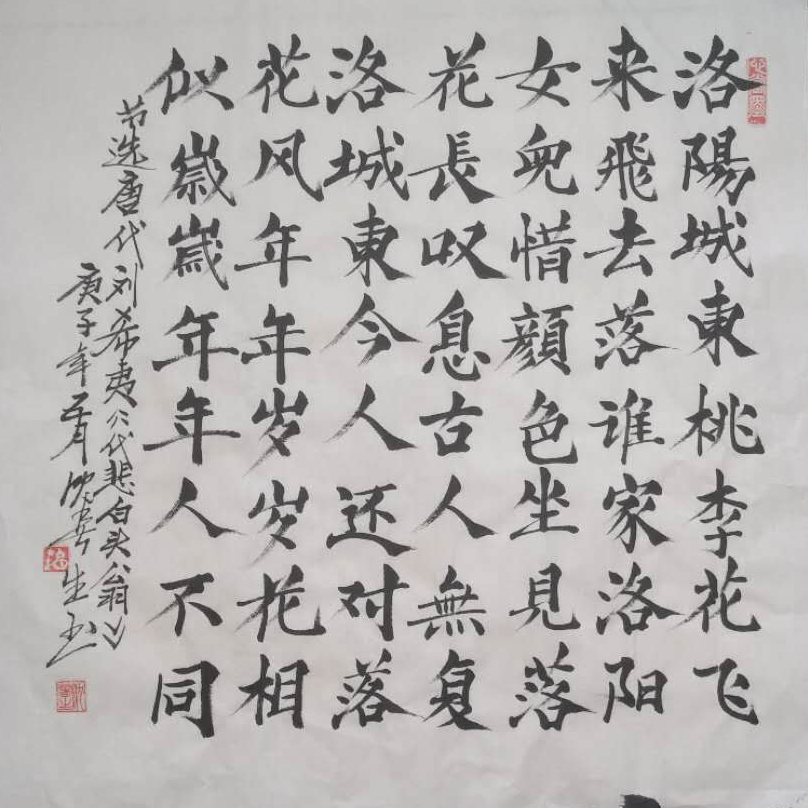 洛陽城東桃李花飞
来飛去落谁家洛阳
女兒惜顔色坐見落
花長叹息古人無复
洛城東今人还对落
花风年年岁岁花相
似歲歲年年人不同
节选唐代刘希夷《代悲白头翁》
庚子年五月